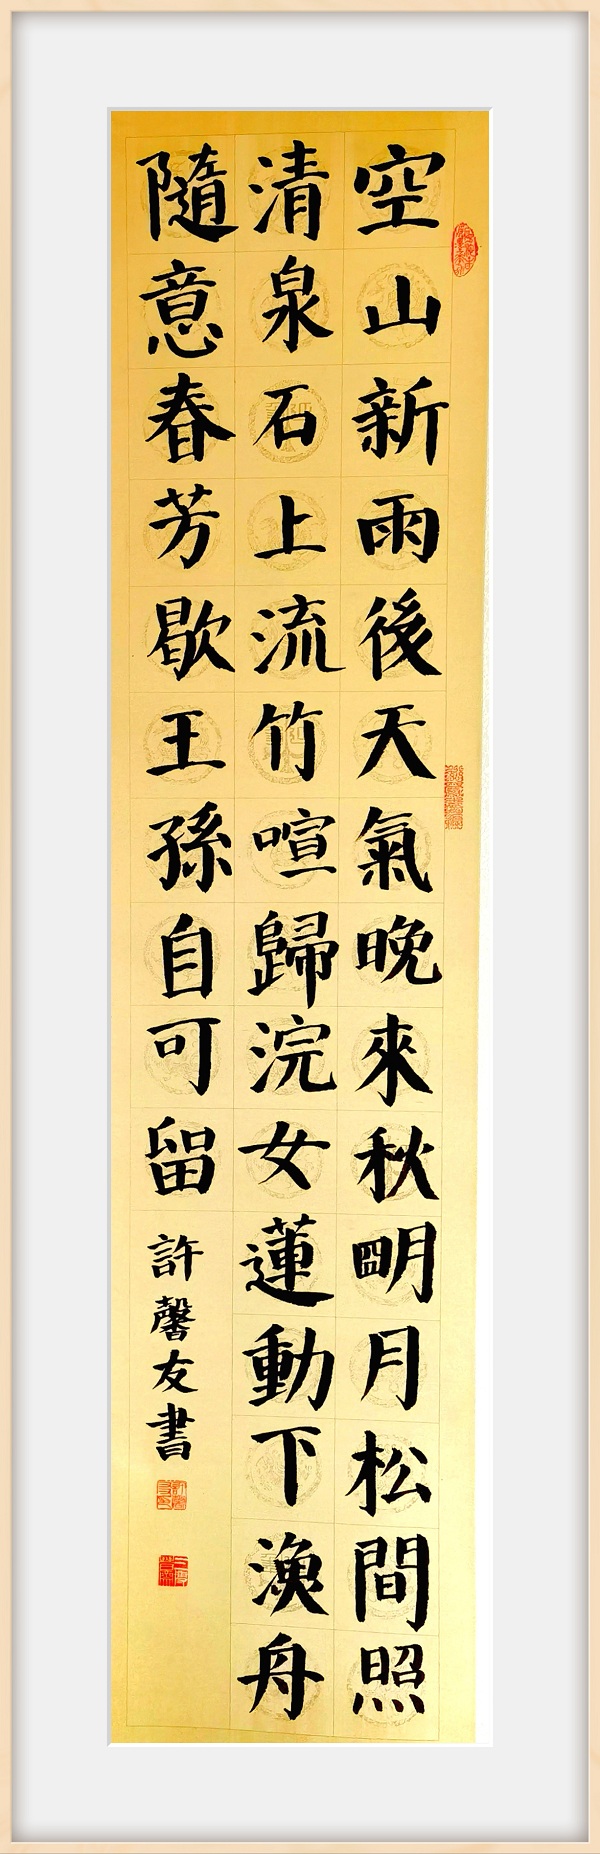 空山新雨後天氣晚來秋明月松間照
清泉石上流竹喧歸浣女蓮動下漁舟
隨意春芳歇王孫自可留
許馨友書